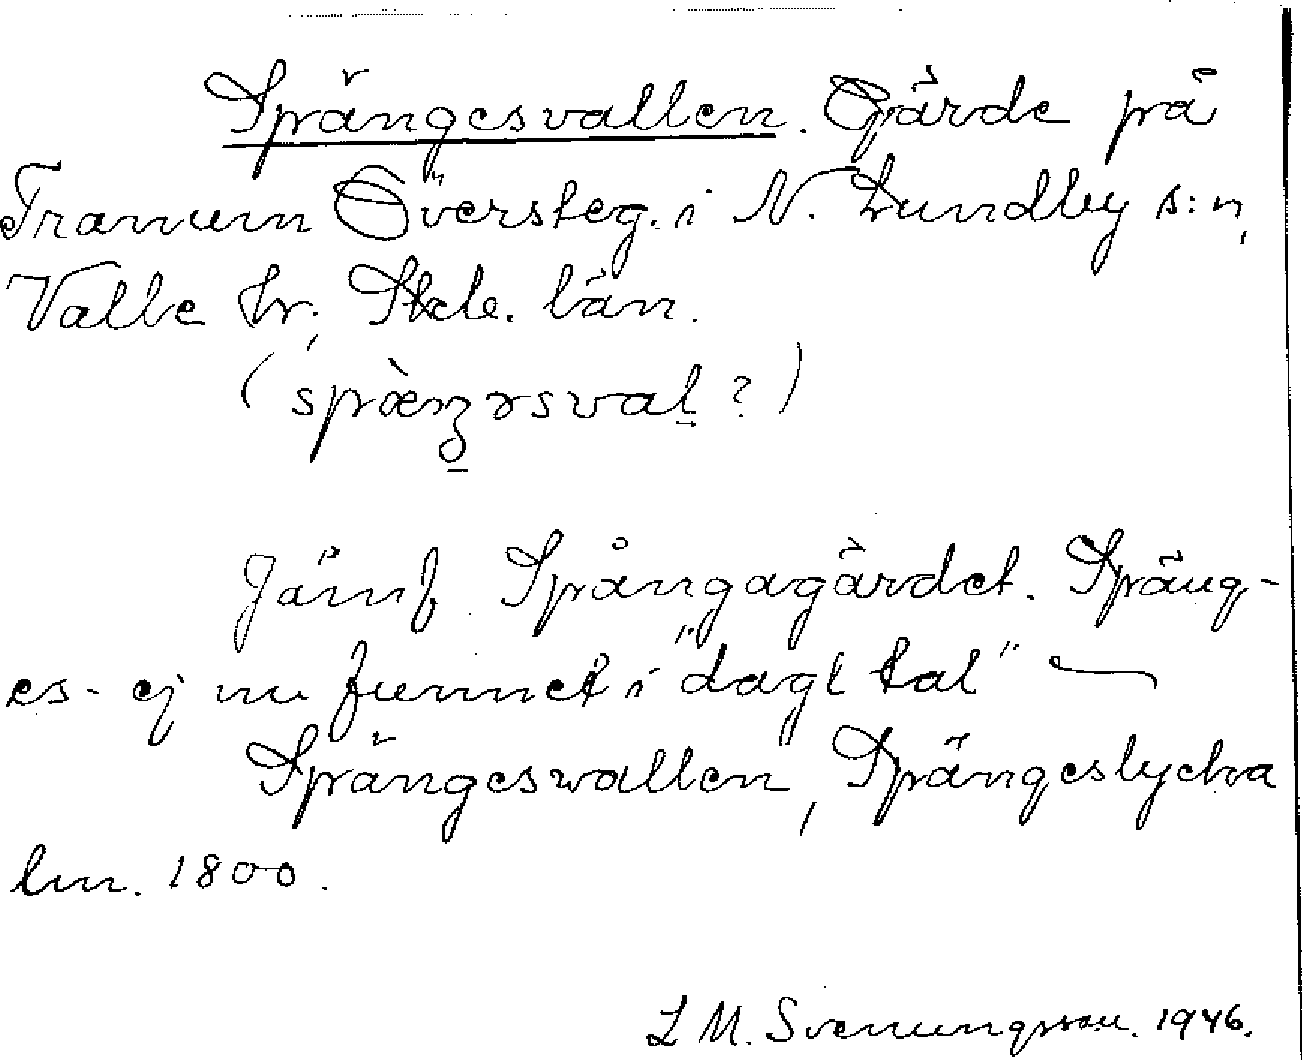 Sprängesvallen. Gärde på
Tranum Öfversteg. i N. Lundby s:n,
Valle hr, Skbg. län.
(spræ̀ŋəsval ?)
Jämf. Spångagärdet. Spräng-
es- ej nu funnet i "dagl tal"
Sprängeswallen, Sprängeslycka
lm. 1800.
L M. Svenungsson. 1946.